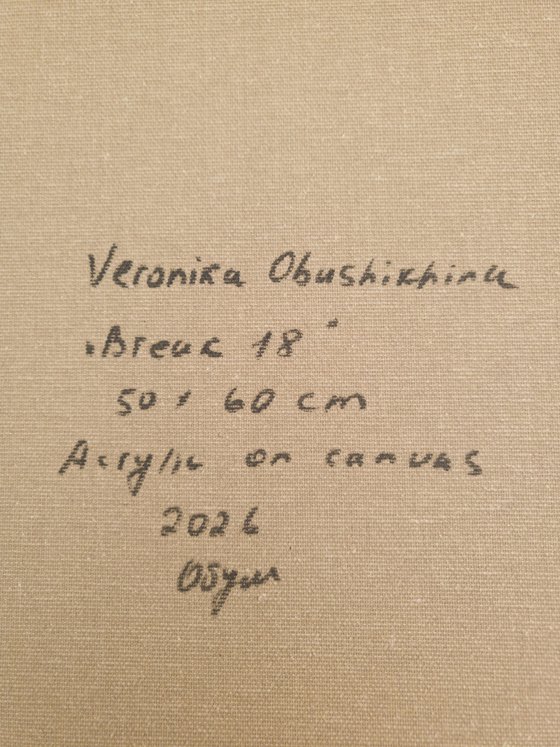 Veronika Obushikhina
"Break 18"
50 x 60 cm
Acrylic on canvas
2026